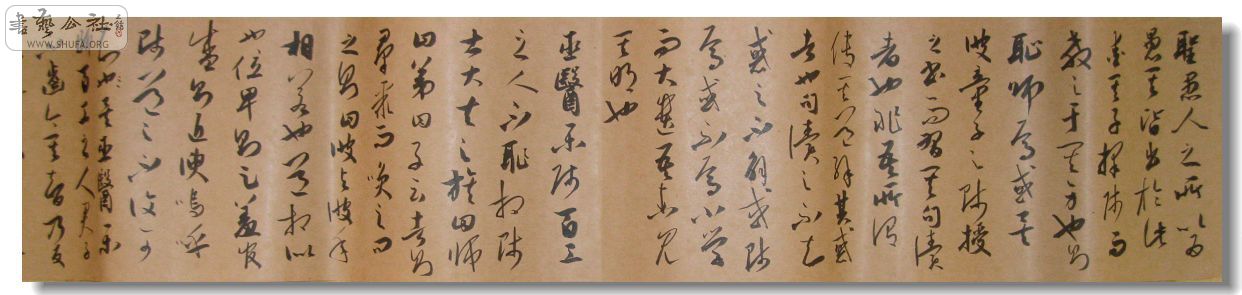 書藝公社
WWW.SHUFA.ORG
聖愚人之所以為
愚其皆出於此
愛其子擇師而
教之于其身也則
恥師焉惑矣
彼童子之師授
之書而習其句讀
者也非吾所謂
傳其道解其惑
者也句讀之不知
惑之不解或師
焉或不焉小學
而大遺吾未見
其明也
巫醫樂師百工
之人不恥相師
士大夫之族曰師
曰弟曰子云者則
羣聚而笑之問
之則曰彼與彼年
相若也道相似
也位卑則足羞官
盛則近諛嗚呼
師道之不復可
也矣巫醫樂
百工之人君子
不齒今其智乃反